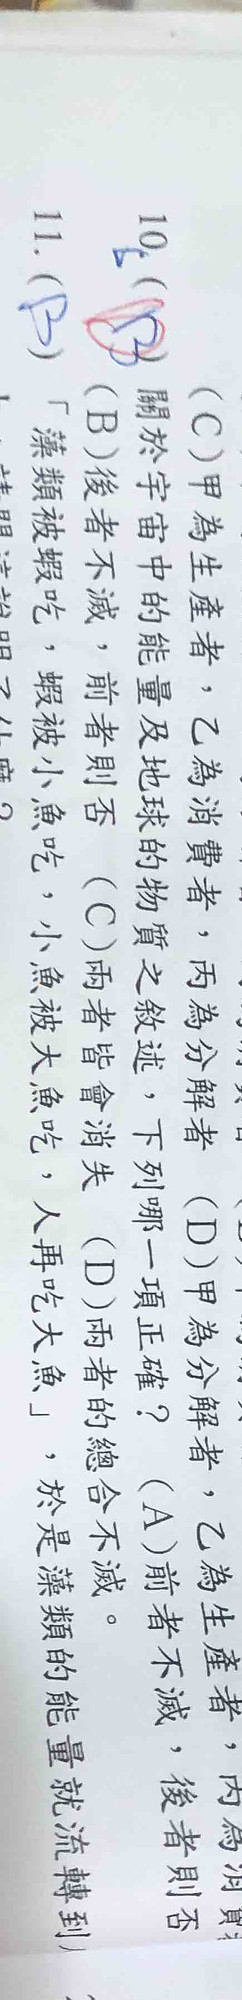 (C)甲為生產者，乙為消費者，丙為分解者 (D)甲為分解者，乙為生產者，丙為消費
10.(B)關於宇宙中的能量及地球的物質之敘述，下列哪一項正確？ (A)前者不滅，後者則否
(B)後者不滅，前者則否 (C)兩者皆會消失 (D)兩者的總合不滅。
11.(B)「藻類被蝦吃，蝦被小魚吃，小魚被大魚吃，人再吃大魚」，於是藻類的能量就流轉到
請問這說明了什麼？